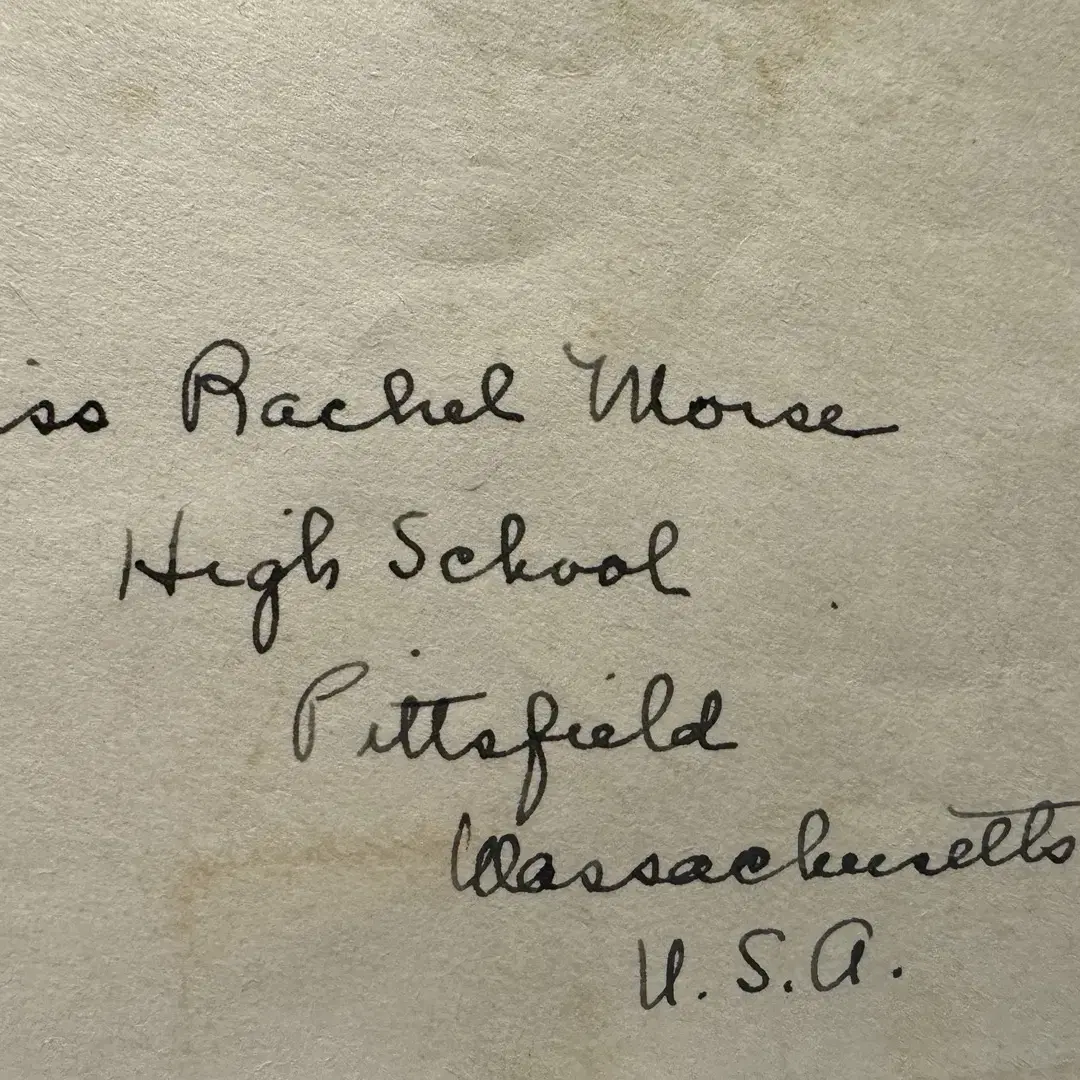 iss Rachel Morse
High School
Pittsfield
Massachusetts
U.S.A.